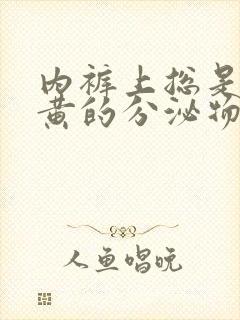 内裤上总是
黄的分泌物
人鱼唱晚